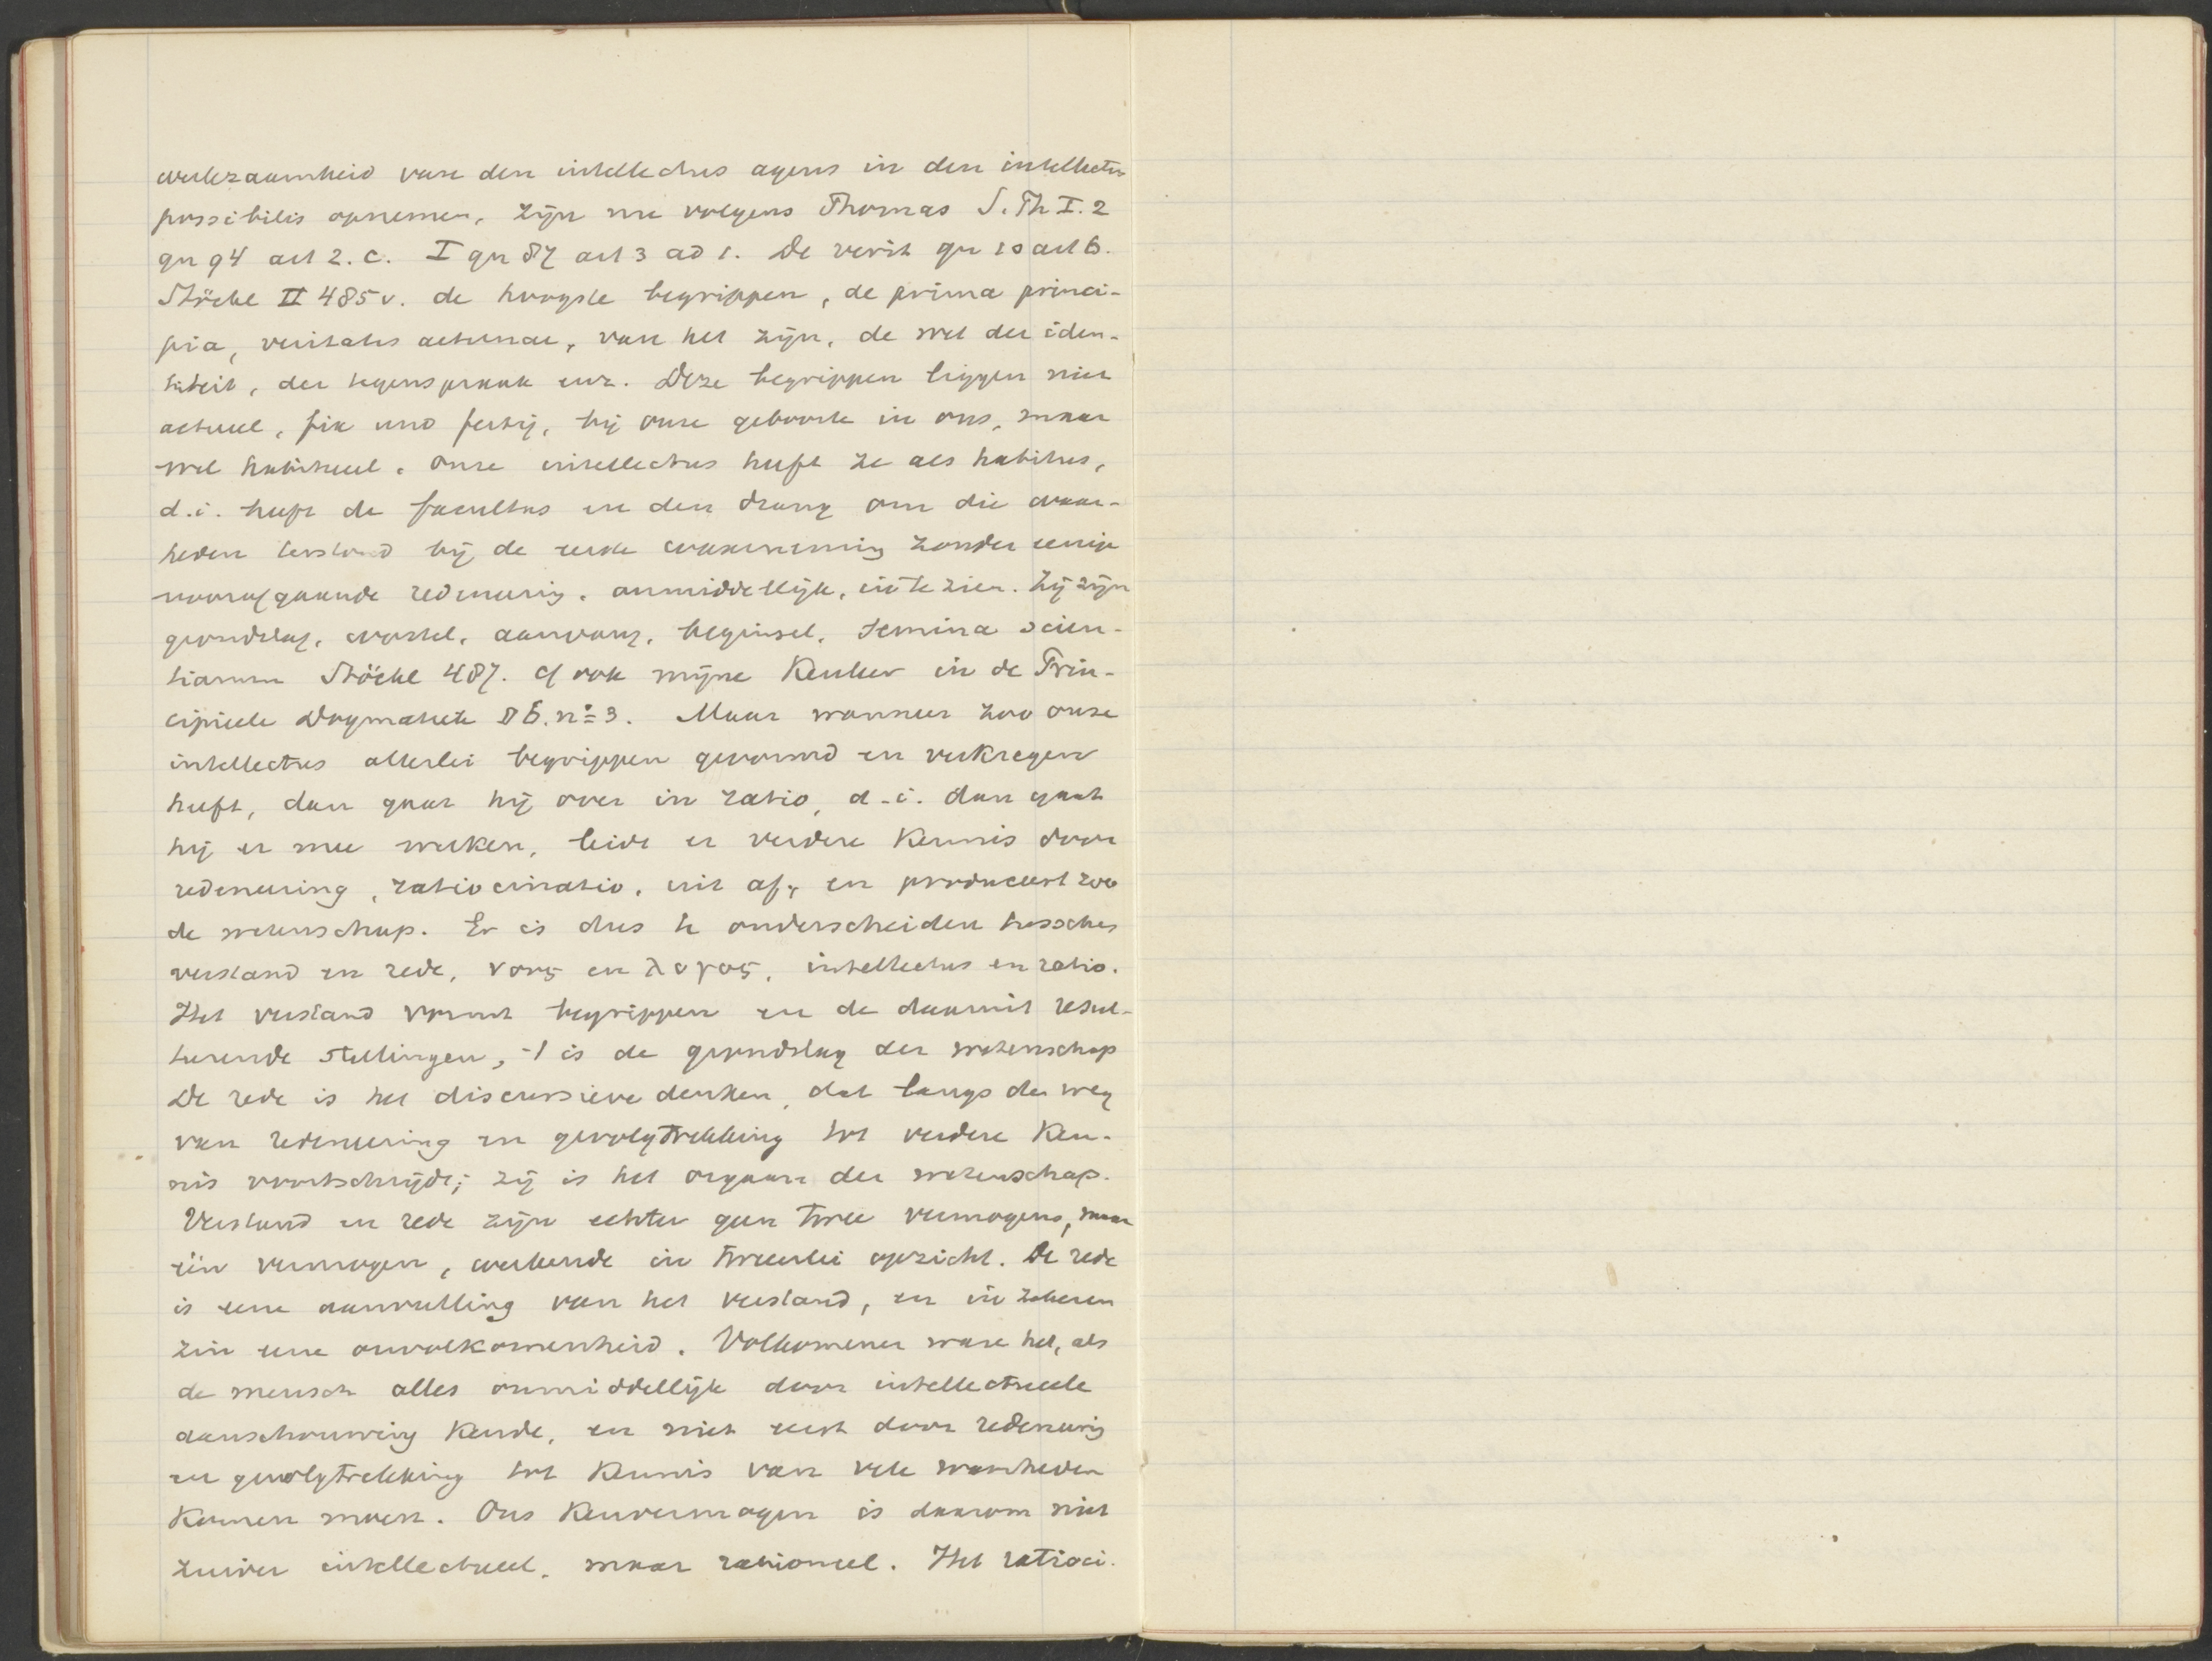 werkzaamheid van den intellectus agens in den intellectus
possibilis opnemen, zijn nu volgens Thomas S. Th I. 2
qu 94 art 2. c. I qu 87 art 3 ad 1. De verit qu 10 art 6.
Stöckl II 485 v. de hoogste begrippen, de prima princi-
pia, veritates aeternae, van het zijn, de wet der iden-
titeit, der tegenspraak enz. Deze begrippen liggen niet
actueel, fix und fertig, bij onze geboorte in ons, maar
wel habitueel. Onze intellectus heeft ze als habitus,
d.i. heeft de facultas en den drang om die waar-
heden terstond bij de eerste waarneming zonder eenige
voorafgaande redeneering, onmiddellijk, in te zien. Zij zijn
grondslag, wortel, aanvang, beginsel, semina scien-
tiarum Stöckl 487. cf ook mijne Kenleer in de Prin-
cipieele Dogmatiek § 6. no 3. Maar wanneer zoo onze
intellectus allerlei begrippen gevormd en verkregen
heeft, dan gaat hij over in ratio, d.i. dan gaat
hij er mee werken, leidt er verdere Kennis door
redeneering, ratiocinatio, uit af, en produceert zoo
de wetenschap. Er is dus te onderscheiden tusschen
verstand en rede, νους en λογος, intellectus en ratio.
Het verstand vormt begrippen en de daaruit resul-
teerende stellingen, 't is de grondslag der wetenschap
De rede is het discursieve denken, dat langs den weg
van redeneering en gevolgtrekking tot verdere Ken-
nis voortschrijdt; zij is het orgaan der wetenschap.
Verstand en rede zijn echter geen twee vermogens, maar
één vermogen, werkende in tweeerlei opzicht. De rede
is eene aanvulling van het verstand, en in zekeren
zin eene onvolkomenheid. Volkomener ware het, als
de mensch alles onmiddellijk door intellectueele
aanschouwing Kende, en niet eerst door redeneering
en gevolgtrekking tot Kennis van vele waarheden
Komen moest. Ons Kenvermogen is daarom niet
zuiver intellectueel, maar rationeel. Het ratioci-